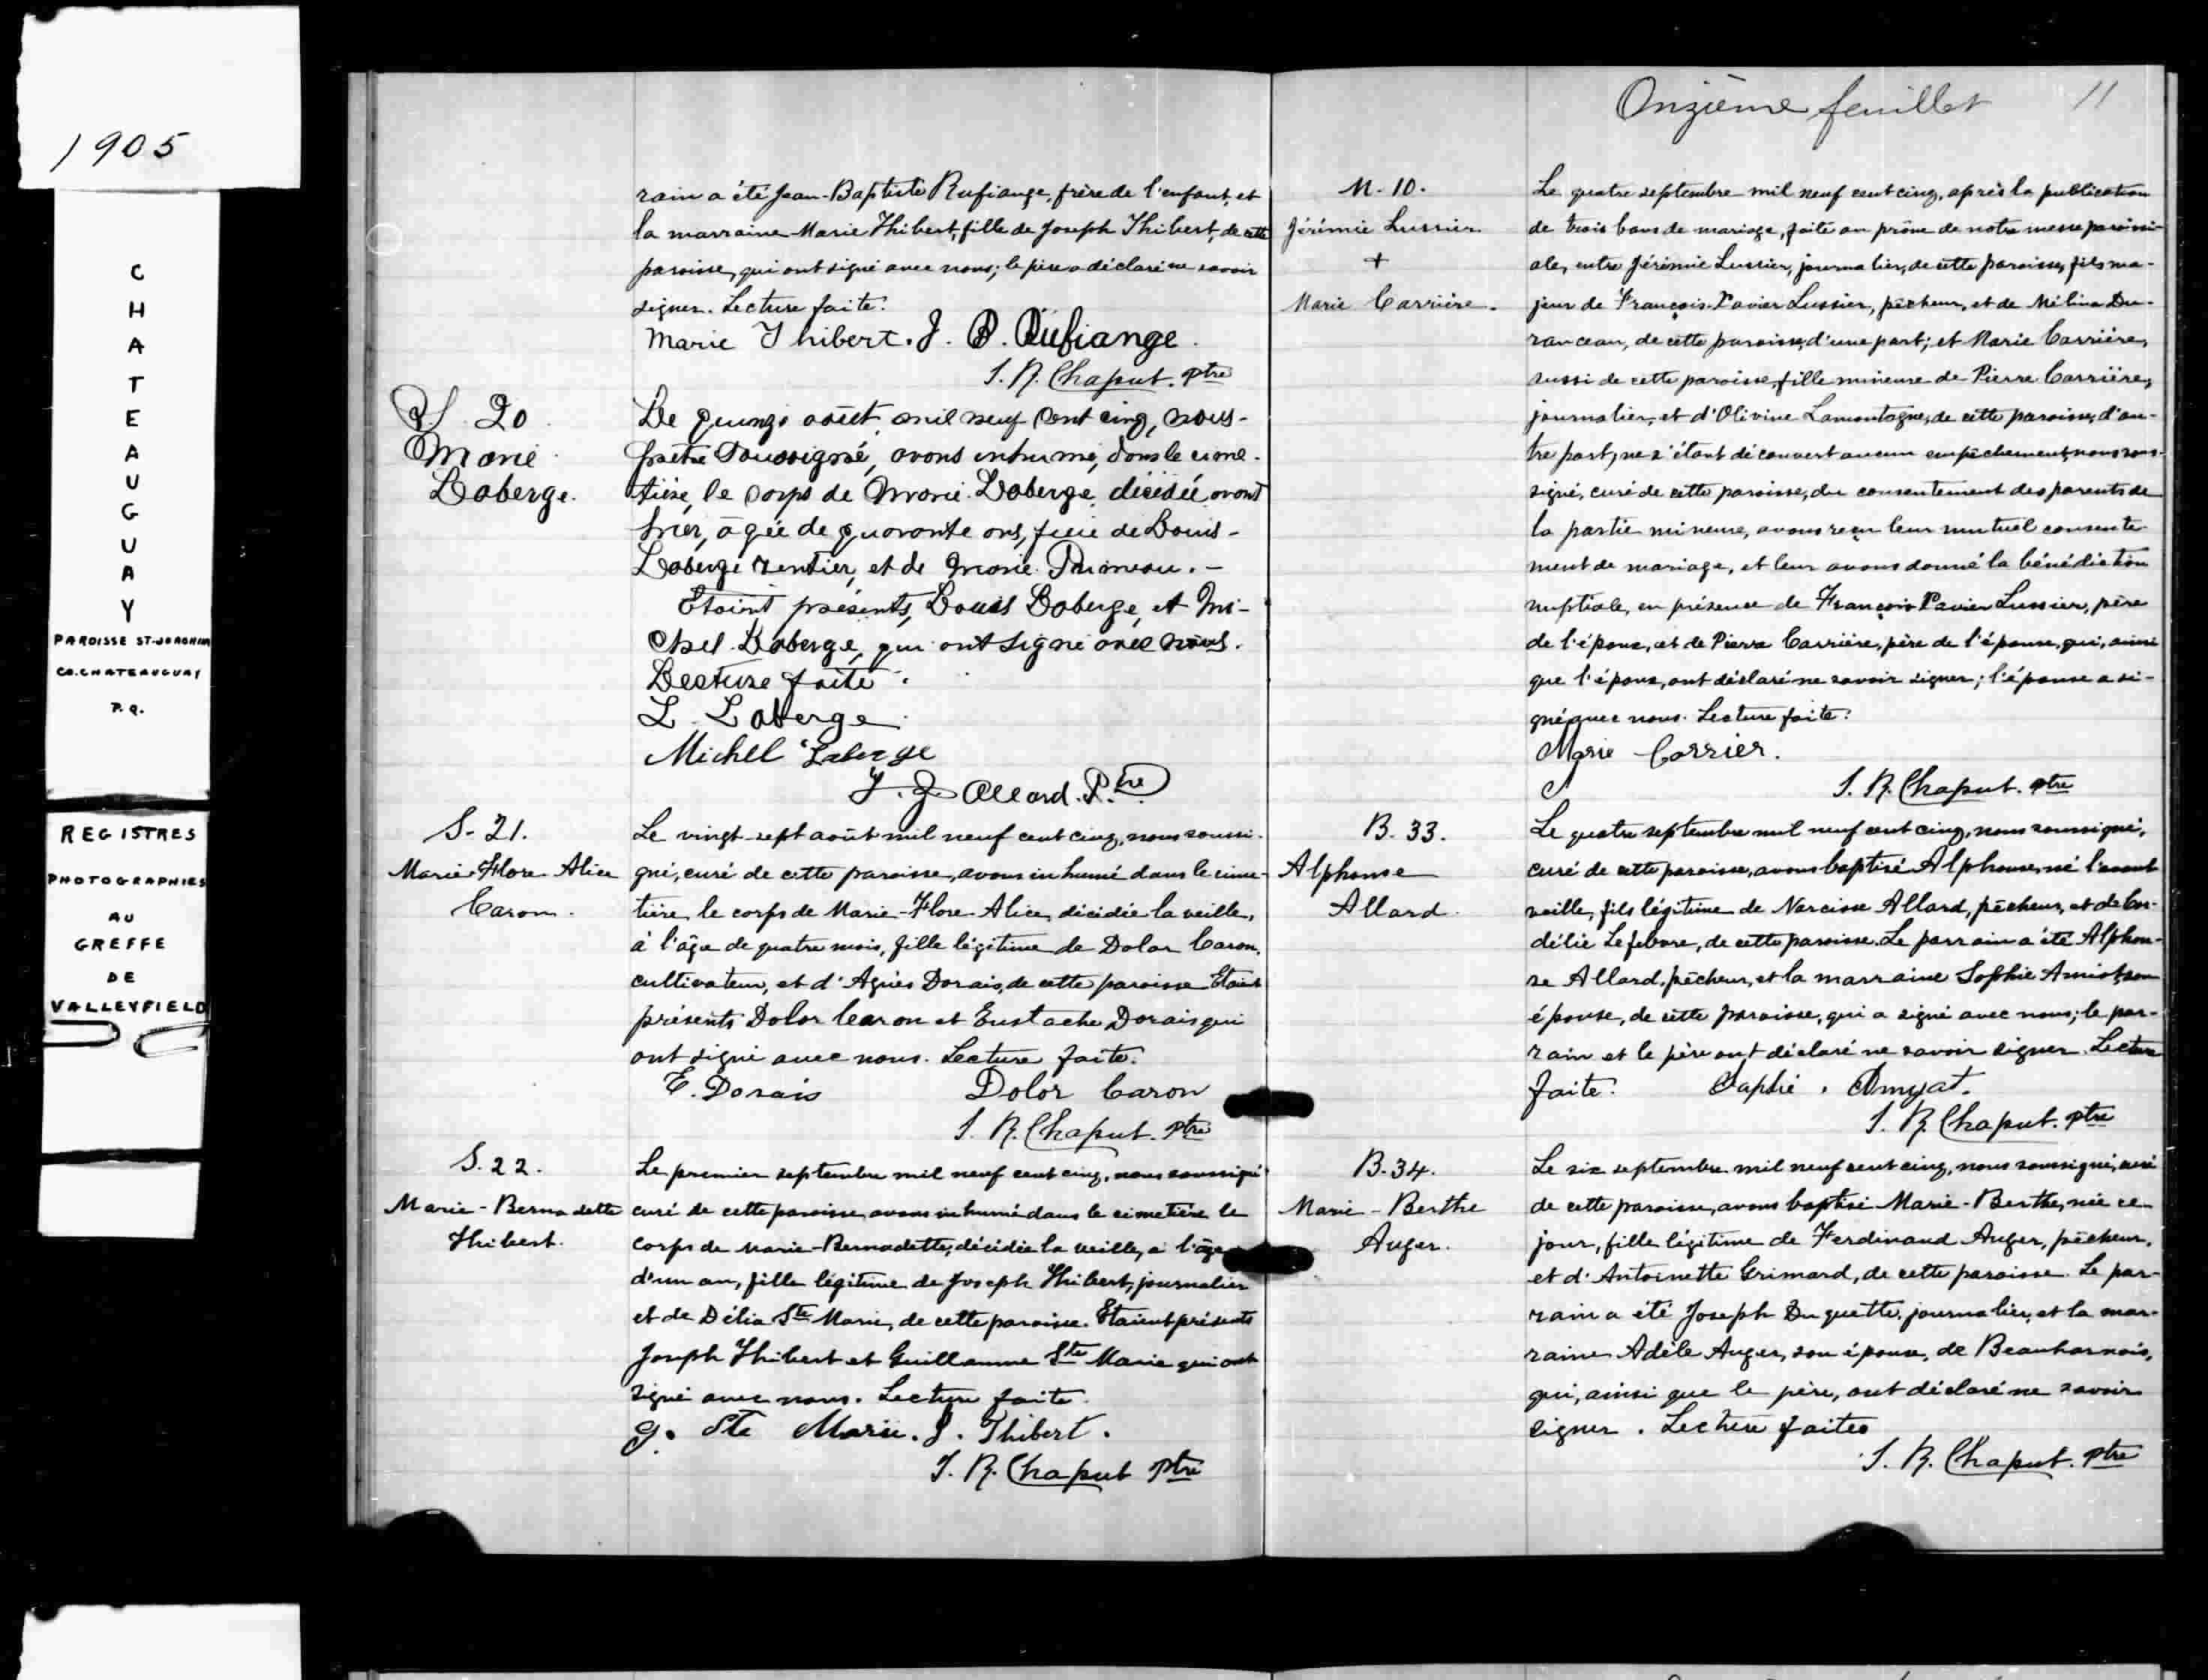 1905
C
H
A
T
E
A
U
G
U
A
Y
PAROISSE ST-JOACHIM
CO. CHATEAUGUAY
P.Q.
REGISTRES
PHOTOGRAPHIES
AU
GREFFE
DE
VALLEYFIELD
rain a été Jean-Baptiste Rufiange, frère de l'enfant, et
la marraine Marie Thibert, fille de Joseph Thibert, de cette
paroisse, qui ont signé avec nous; le père a déclaré ne savoir
signer. Lecture faite.
Marie Thibert. J. B. Rufiange.
J. R. Chaput. ptre
S. 20
Marie
Laberge.
Le quinze août, mil neuf cent cinq, nous-
prêtre soussigné, avons inhumé, dans le cime-
tière, le corps de Marie Laberge, décédée avant
hier, âgée de quarante ans, fille de Louis-
Laberge rentier, et de Marie Primeau. -
Etaient présents, Louis Laberge, et Mi-
chel Laberge, qui ont signé avec nous.
Lecture faite.
L. Laberge
Michel Laberge
J. J. Allard. Ptre
S. 21.
Marie-Flore-Alice
Caron.
Le vingt-sept août mil neuf cent cinq, nous soussi-
gné, curé de cette paroisse, avons inhumé dans le cime-
tière, le corps de Marie-Flore-Alice, décédée la veille,
à l'âge de quatre mois, fille légitime de Dolor Caron,
cultivateur, et d'Agnès Dorais, de cette paroisse. Etaient
présents Dolor Caron et Eustache Dorais qui
ont signé avec nous. Lecture faite.
E. Dorais Dolor Caron
J. R. Chaput. ptre
S. 22.
Marie-Bernadette
Thibert.
Le premier septembre mil neuf cent cinq, nous soussigné
curé de cette paroisse avons inhumé dans le cimetière le
corps de Marie-Bernadette, décédée la veille, à l'âge
d'un an, fille légitime de Joseph Thibert, journalier
et de Délia Ste Marie, de cette paroisse. Etaient présents
Joseph Thibert et Guillaume Ste Marie qui ont
signé avec nous. Lecture faite.
G. Ste Marie. J. Thibert.
J. R. Chaput ptre
Onzième feuillet 11
M. 10.
Jérémie Lussier
+
Marie Carrière.
Le quatre septembre mil neuf cent cinq, après la publication
de trois bans de mariage, faite au prône de notre messe paroissi-
ale, entre Jérémie Lussier, journalier, de cette paroisse, fils ma-
jeur de François-Xavier Lussier, pêcheur, et de Mélina Du-
ranceau, de cette paroisse, d'une part; et Marie Carrière,
aussi de cette paroisse, fille mineure de Pierre Carrière,
journalier, et d'Olivine Lamontagne, de cette paroisse, d'au-
tre part, ne s'étant découvert aucun empêchement, nous sous-
signé, curé de cette paroisse, du consentement des parents de
la partie mineure, avons reçu leur mutuel consente-
ment de mariage, et leur avons donné la bénédiction
nuptiale, en présence de François-Xavier Lussier, père
de l'époux, et de Pierre Carrière, père de l'épouse, qui, ainsi
que l'époux, ont déclaré ne savoir signer; l'épouse a si-
gné avec nous. Lecture faite.
Marie Carrier.
J. R. Chaput. ptre
B. 33.
Alphonse
Allard.
Le quatre septembre mil neuf cent cinq, nous soussigné,
curé de cette paroisse, avons baptisé Alphonse, né l'avant
veille, fils légitime de Narcisse Allard, pêcheur, et de Cor-
délie Lefebvre, de cette paroisse. Le parrain a été Alphon-
se Allard, pêcheur, et la marraine Sophie Amiot, son
épouse, de cette paroisse, qui a signé avec nous; le par-
rain et le père ont déclaré ne savoir signer. Lecture
faite. Saphie. Amyat.
J. R. Chaput. ptre
B. 34.
Marie-Berthe
Auger.
Le six septembre mil neuf cent cinq, nous soussigné, curé
de cette paroisse, avons baptisé Marie-Berthe, née ce
jour, fille légitime de Ferdinand Auger, pêcheur,
et d'Antoinette Grimard, de cette paroisse. Le par-
rain a été Joseph Duquette, journalier, et la mar-
raine Adèle Auger, son épouse, de Beauharnois,
qui, ainsi que le père, ont déclaré ne savoir
signer. Lecture faite.
J. R. Chaput. ptre